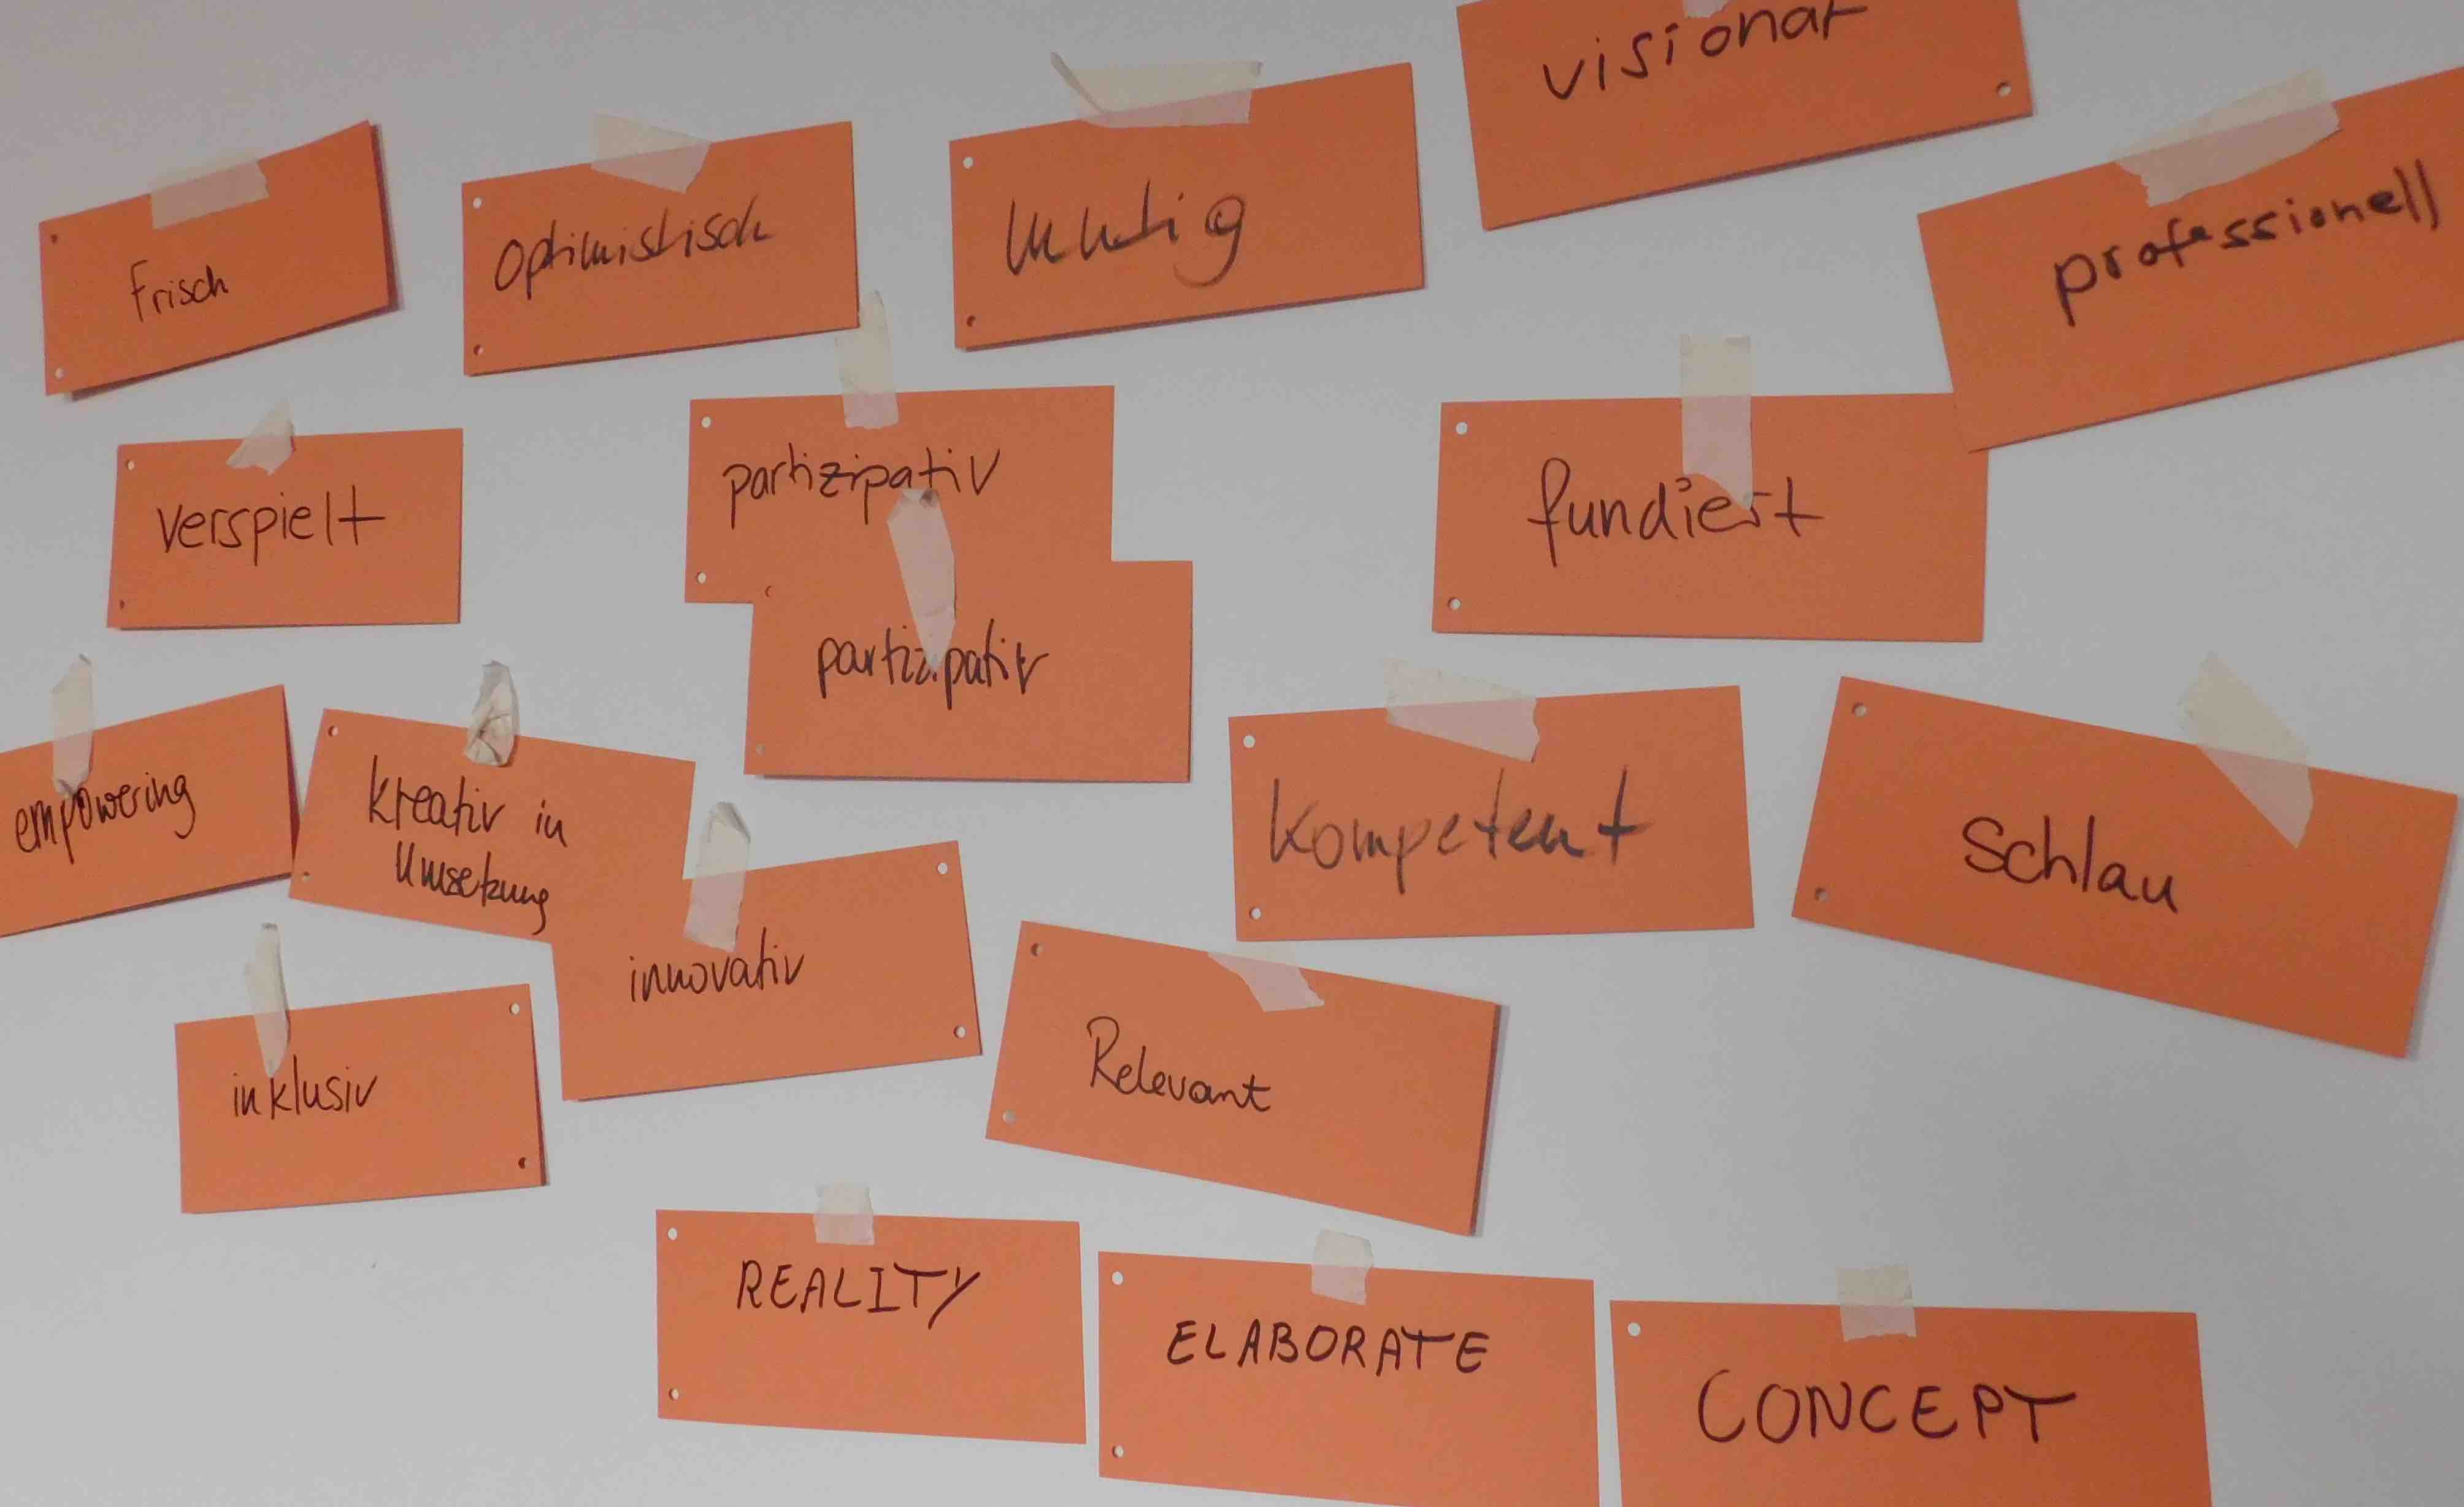 visionär
frisch
optimistisch
mutig
professionell
verspielt
partizipativ
fundiert
partizipativ
empowering
kreativ in
Umsetzung
kompetent
Schlau
innovativ
inklusiv
Relevant
REALITY
ELABORATE
CONCEPT